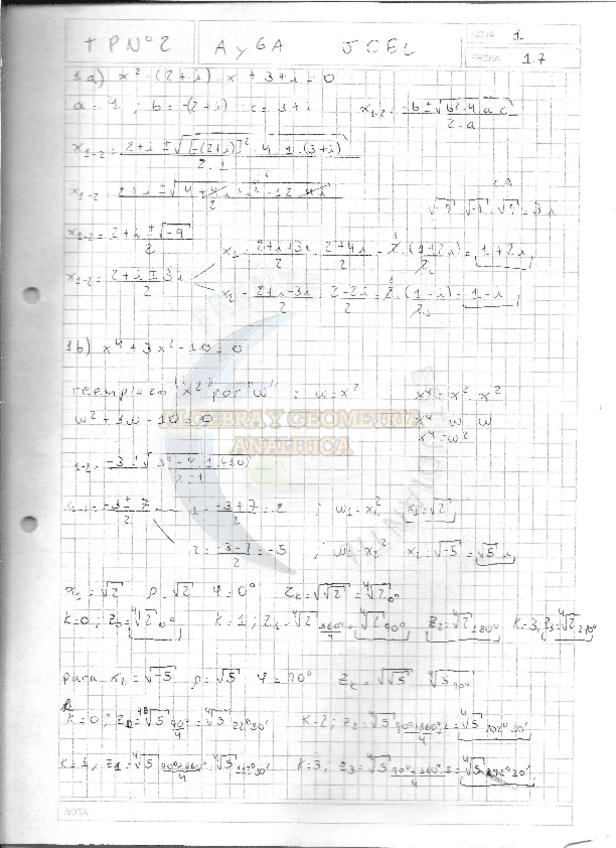 HOJA 1
TP Nº 2 A y GA JCEL
FECHA 1.7
1a) x² - (2+i) · x + 3+i = 0
a = 1 ; b = -(2+i) c = 3+i x₁₋₂ = (-b ± √(b²-4·a·c)) / (2·a)
x₁₋₂ = (2+i ± √([-(2+i)]² - 4·1·(3+i))) / (2·1)
x₁₋₂ = (2+i ± √(4+4i+i²-12-4i)) / 2
√-9 = √-1 · √9 = 3i
x₁₋₂ = (2+i ± √-9) / 2
x₁ = (2+i+3i)/2 = (2+4i)/2 = 2·(1+2i)/2 = 1+2i
x₁₋₂ = (2+i ± 3i) / 2
x₂ = (2+i-3i)/2 = (2-2i)/2 = 2·(1-i)/2 = 1-i
1b) x⁴ + 3x² - 10 = 0
reemplazo "x²" por "w" : w = x² x⁴ = x² · x²
w² + 3w - 10 = 0 x⁴ = w · w
x⁴ = w²
ALGEBRA Y GEOMETRIA
ANALITICA
₁₋₂ = (-3 ± √(3²-4·1·(-10))) / (2·1)
₁₋₂ = (-3 ± 7)/2 ₁ = (-3+7)/2 = 2 ; w₁ = x₁² x₁ = √2
₂ = (-3-7)/2 = -5 ; w₂ = x₂² x₂ = √-5 = √5 i
x₁ = √2 ρ = √2 φ = 0° Zk = √√2 = ⁴√2 0°
K=0 ; Z₀ = ⁴√2 0° K=1 ; Z₁ = ⁴√2 360°/4 = ⁴√2 90° Z₂ = ⁴√2 180° K=3, Z₃ = ⁴√2 270°
para x₂ = √-5 ρ = √5 φ = 90° Zk = √√5 ⁴√5 90°
K=0 ; Z₀ = ⁴√5 90°/4 = ⁴√5 22°30' K=2 ; Z₂ = ⁴√5 90°+360°·2/4 = ⁴√5 202°30'
K=1 ; Z₁ = ⁴√5 90°+360°/4 ⁴√5 112°30' K=3 ; Z₃ = ⁴√5 90°+360°·3/4 = ⁴√5 292°30'
NOTA